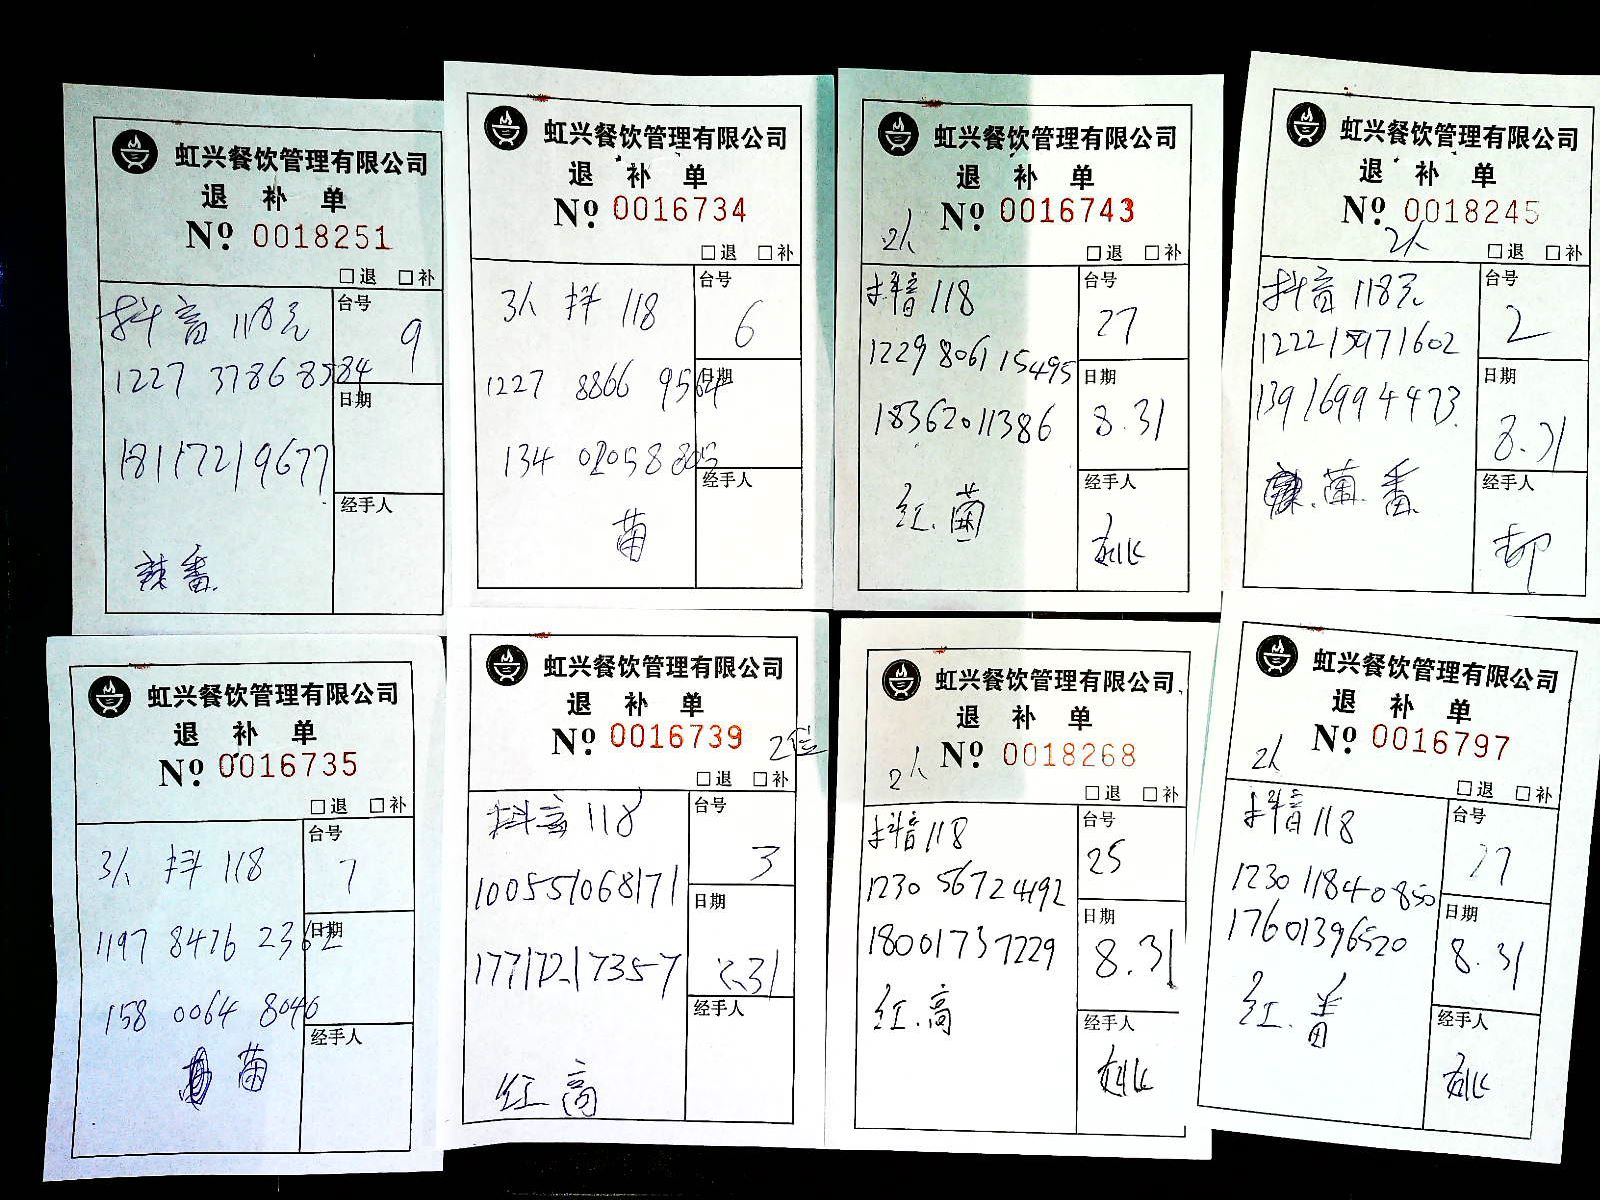 虹兴餐饮管理有限公司
退 补 单
Nº 0018251
□退 □补
抖音 118元
台号
9
1227 3786 8584
日期
18117219677
经手人
辣番
虹兴餐饮管理有限公司
退 补 单
Nº 0016734
□退 □补
3人 抖 118
台号
6
1227 8866 9564
日期
134 0205 8805
经手人
菌
虹兴餐饮管理有限公司
退 补 单
Nº 0016743
2人
□退 □补
抖音 118
台号
27
1229 8061 15495
日期
18362011386
8.31
经手人
红.菌
虹兴餐饮管理有限公司
退 补 单
Nº 0018245
2人
□退 □补
抖音 118元
台号
2
日期
13916994473
8.31
经手人
菌 番
虹兴餐饮管理有限公司
退 补 单
Nº 0016735
□退 □补
3人 抖 118
台号
7
1197 8476 2362
日期
158 0064 8046
经手人
菌
虹兴餐饮管理有限公司
退 补 单
Nº 0016739
2位
□退 □补
抖音 118
台号
3
100551068171
日期
17717217357
8.31
经手人
红 高
虹兴餐饮管理有限公司
退 补 单
Nº 0018268
2人
□退 □补
抖音 118
台号
25
1230 5672 4192
日期
18001737229
8.31
红.高
经手人
虹兴餐饮管理有限公司
退 补 单
Nº 0016797
2人
□退 □补
抖音 118
台号
27
1230 11840850
日期
17601396520
8.31
红.
经手人